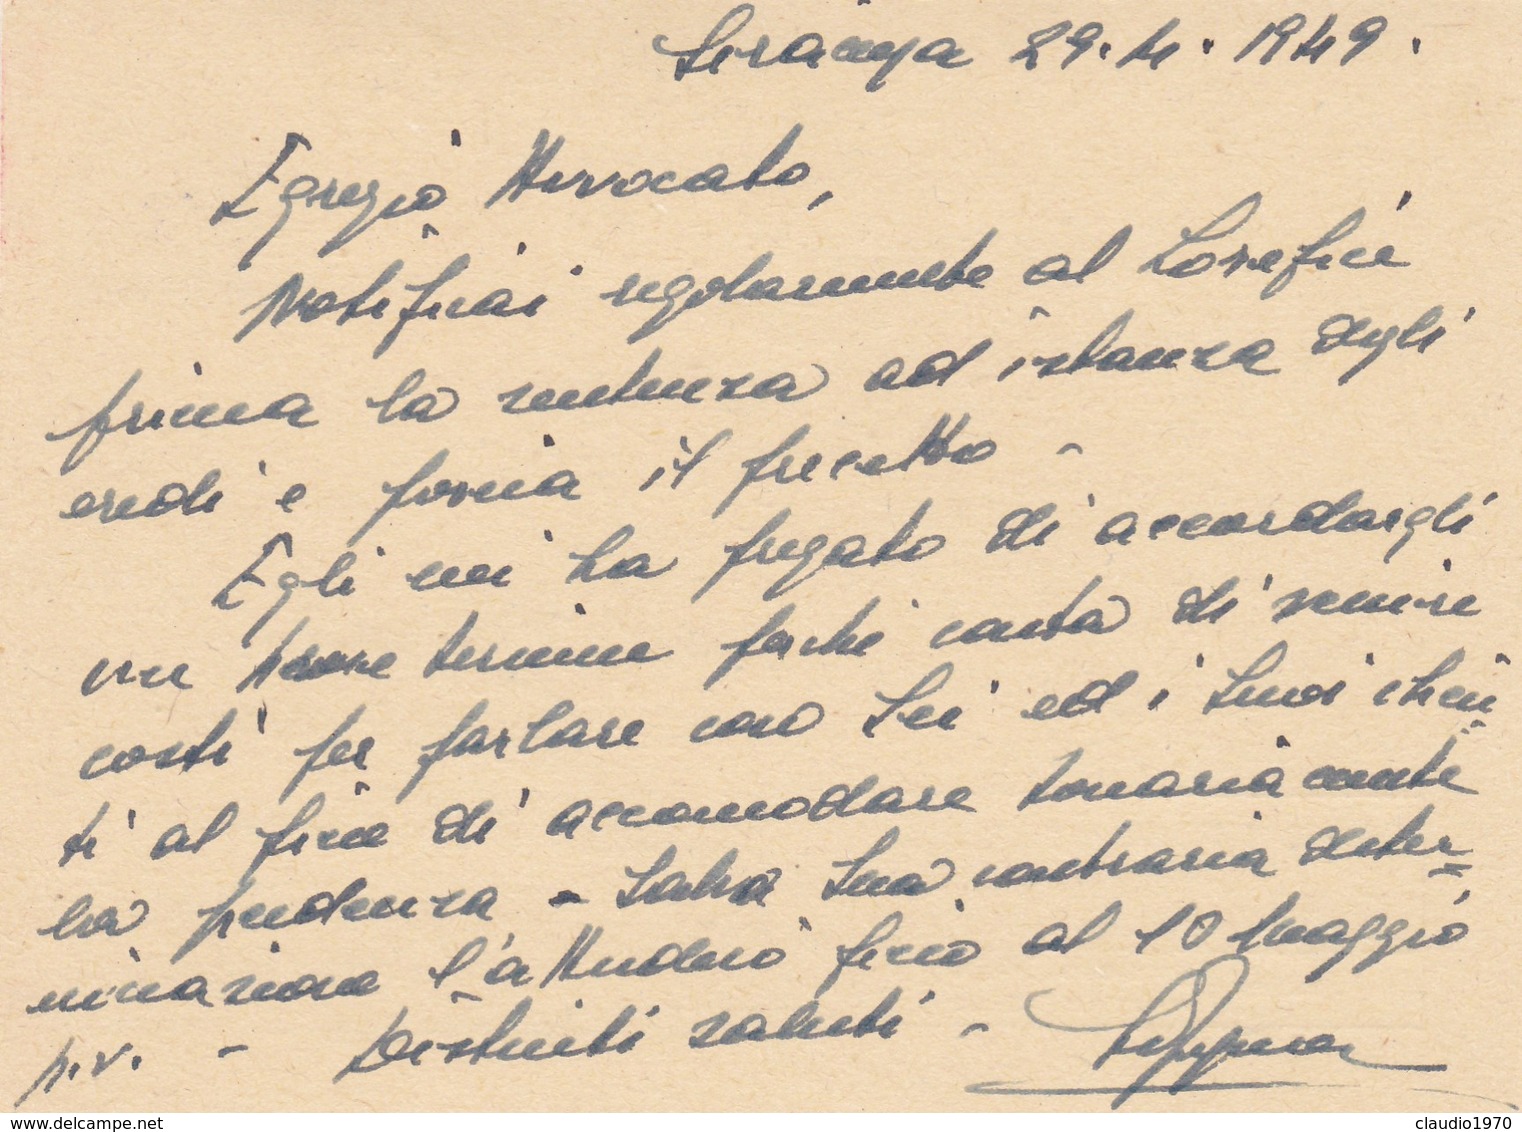 29.4.1949.
Egregio Avvocato,
Notificai regolarmente al Lorefice
prima la sentenza ad istanza degli
eredi e poscia il precetto -
Egli mi ha pregato di accordargli
un breve termine perché conta di venire
costì per parlare con Lei ed i Suoi clien-
ti al fine di accomodare bonariamente
la pendenza - Salvo Sua contraria deter-
minazione l'attenderò fino al 10 Maggio
p.v. - Distinti saluti -
claudio1970